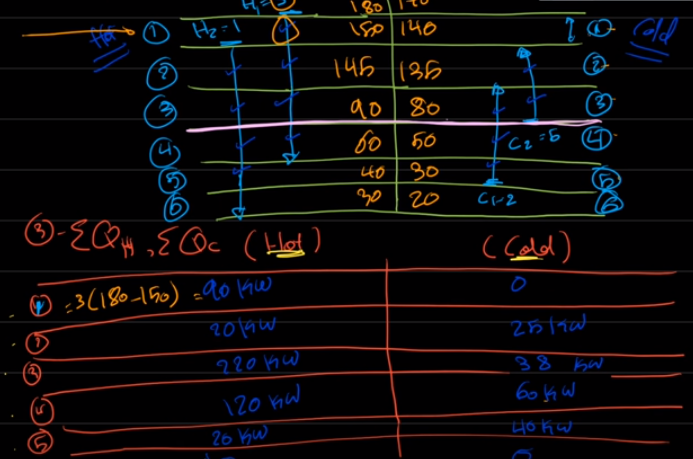 180 170
① H₂=1 150 140 ①
Hot Cold
② 145 135 ②
③ 90 80 ③
④ 60 50 C₂=5 ④
⑤ 40 30 ⑤
⑥ 30 20 C₁=2 ⑥
③-ΣQH, ΣQc (Hot) (Cold)
① =3(180-150) =90 KW 0
② 20 KW 25 KW
③ 220 KW 38 KW
④ 120 KW 60 KW
⑤ 20 KW 40 KW